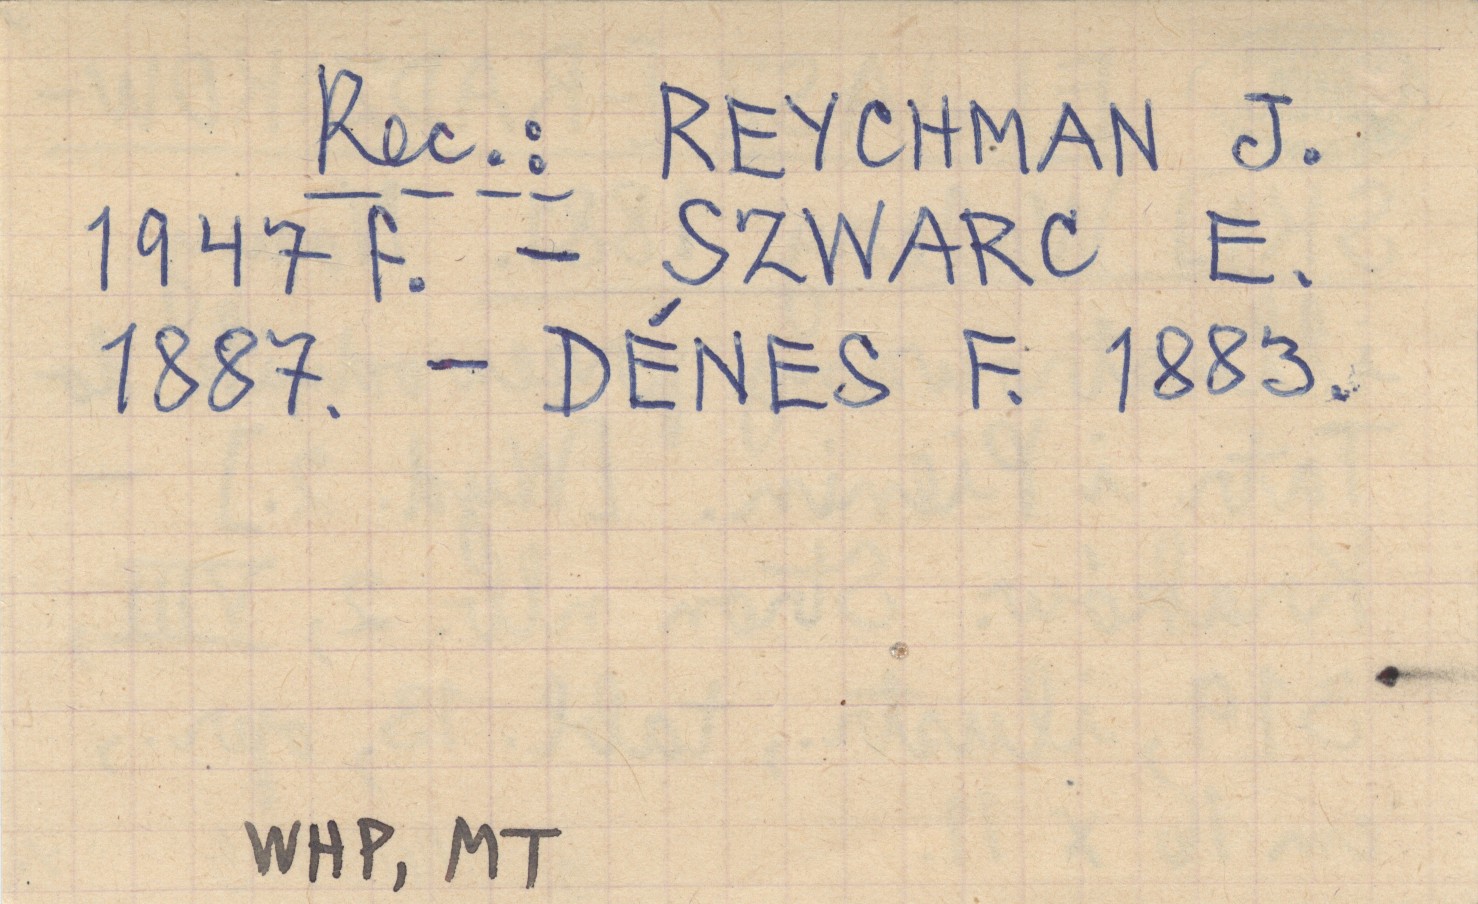 Rec.: REYCHMAN J.
1947 f. – SZWARC E.
1887. – DÉNES F. 1883.
WHP, MT